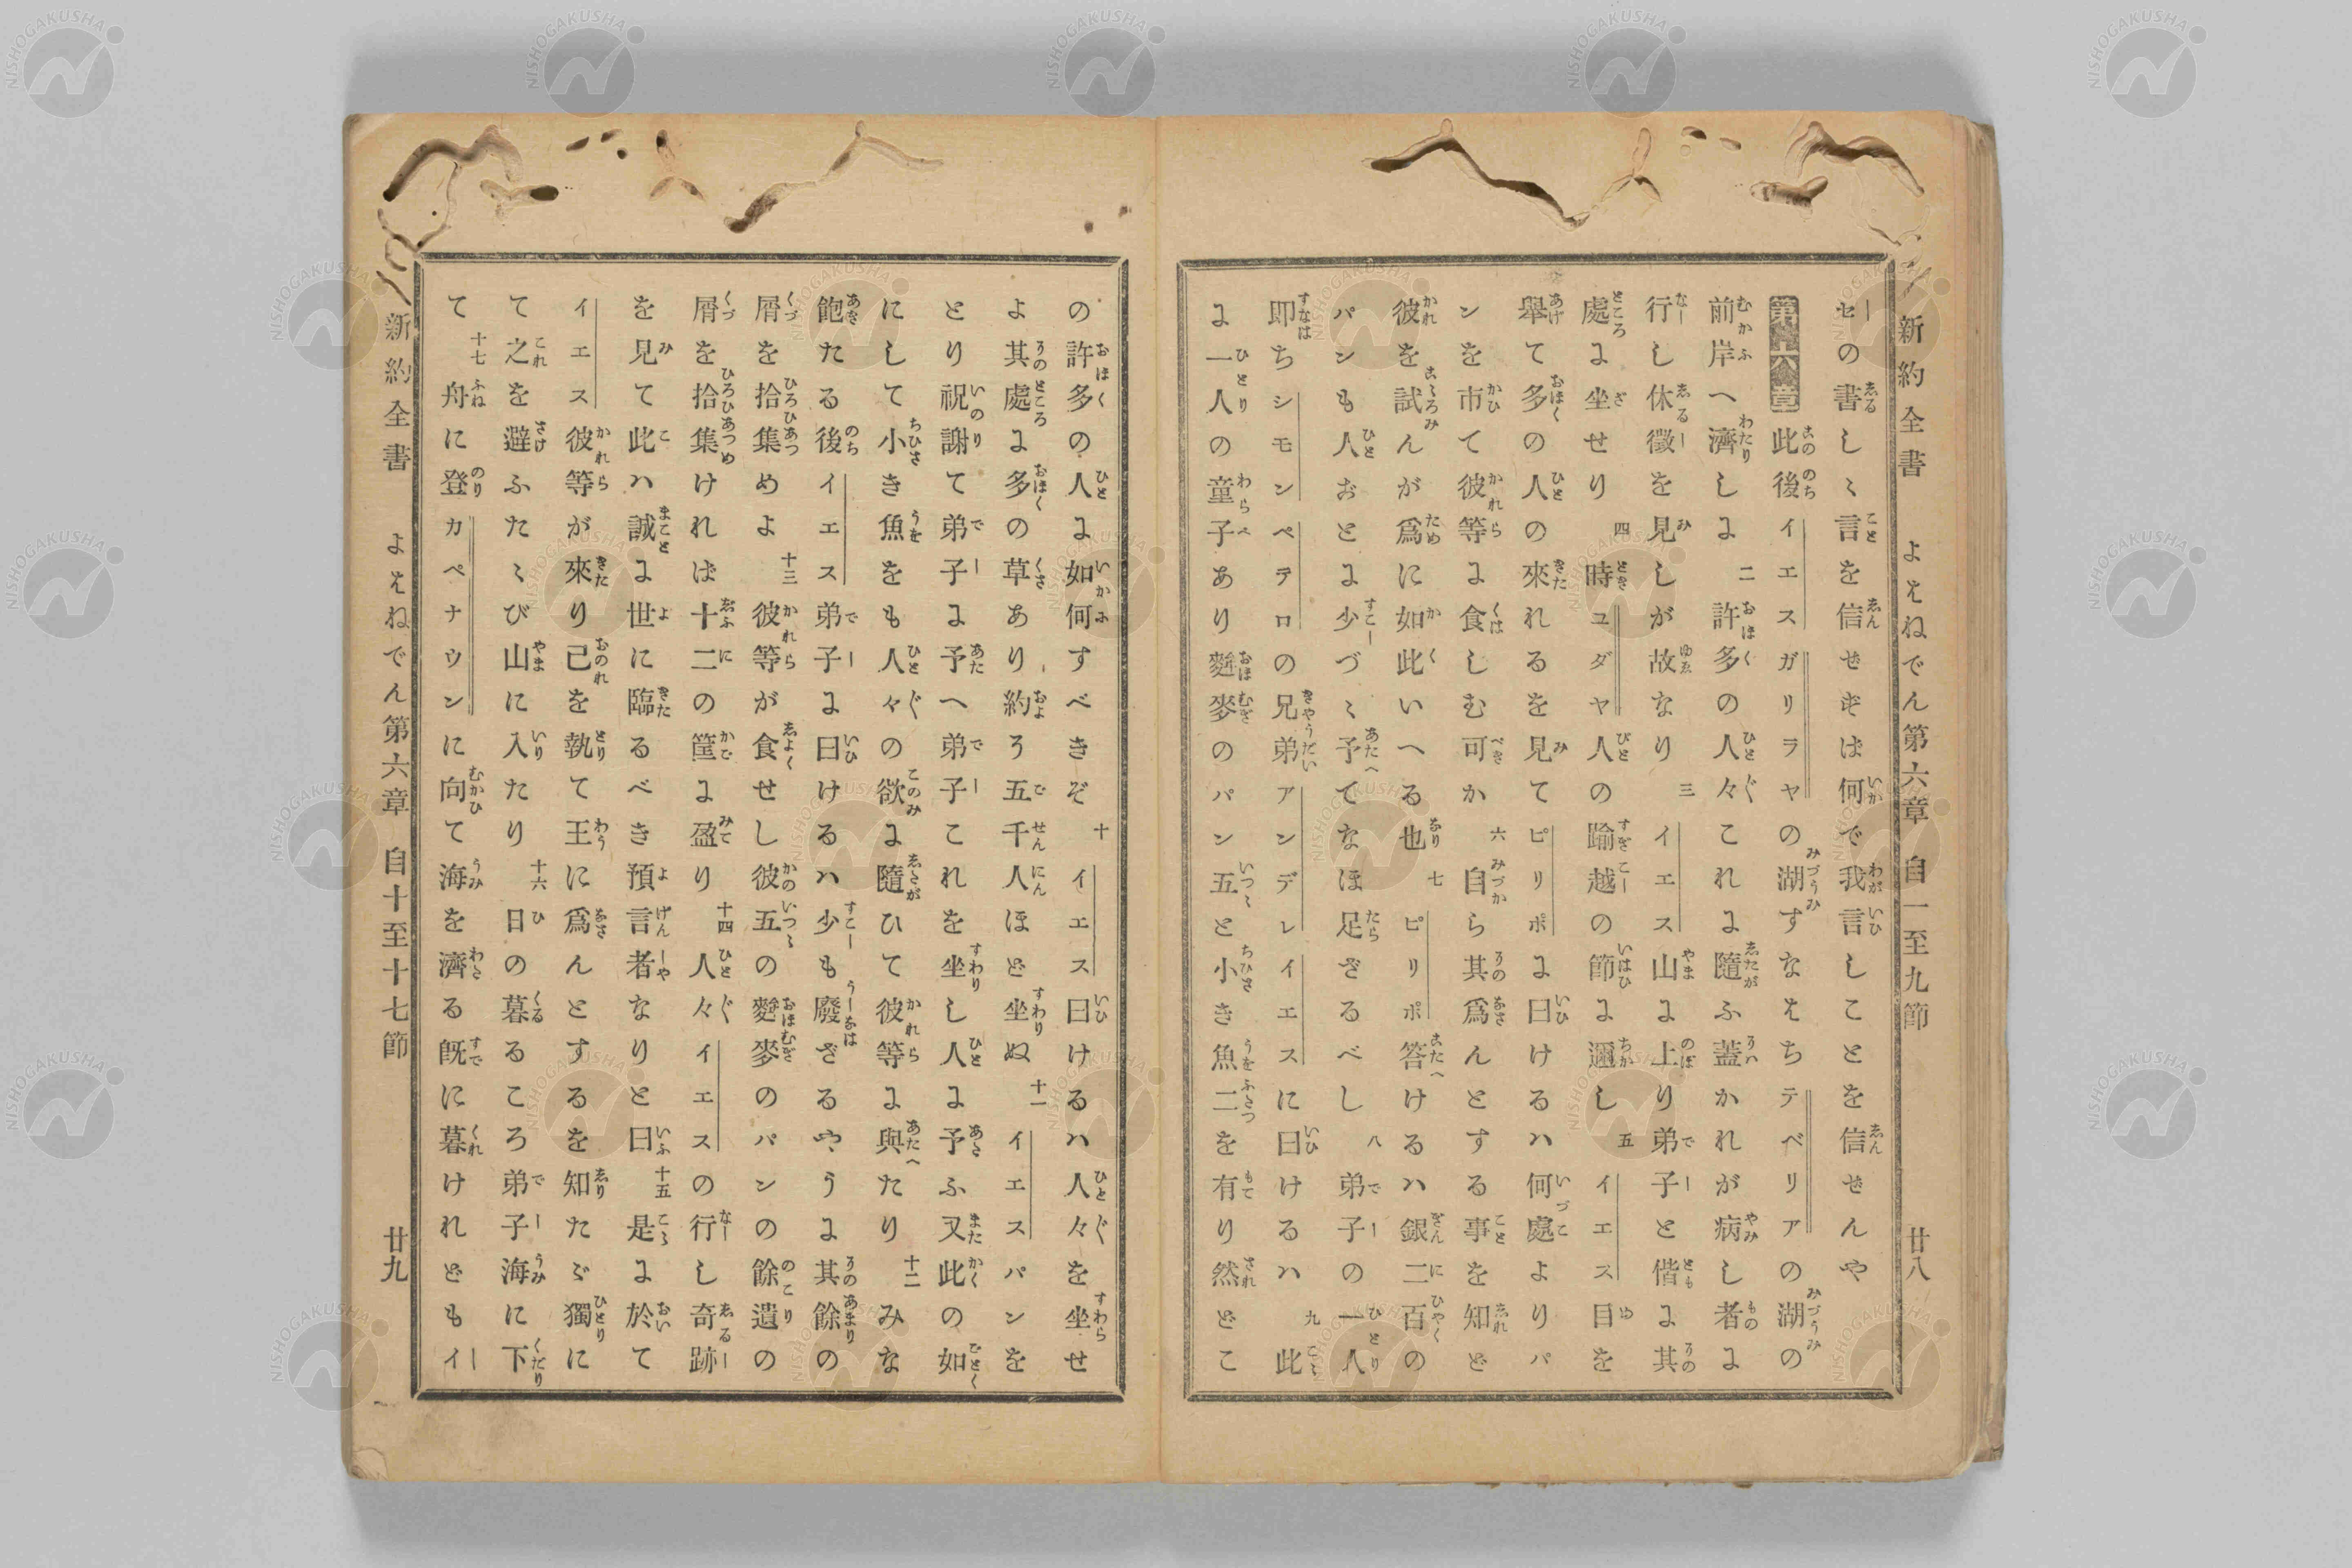 新約全書 よはねでん第六章 自一至九節 廿八
セの書しゝ言を信せずば何で我言しことを信せんや
第六章 此後イエスガリラヤの湖すなはちテベリアの湖の
前岸へ濟しに 二 許多の人々これに隨ふ蓋かれが病し者に
行し休徵を見しが故なり 三 イエス山に上り弟子と偕に其
處に坐せり 四 時ユダヤ人の踰越の節に邇し 五 イエス目を
舉て多の人の來れるを見てピリポに曰けるハ何處よりパ
ンを市て彼等に食しむ可か 六 自ら其爲んとする事を知ど
彼を試んが爲に如此いへる也 七 ピリポ答けるハ銀二百の
パンも人おとに少づゝ予てなほ足ざるべし 八 弟子の一人
即ちシモンペテロの兄弟アンデレイエスに曰けるハ 九 此
に一人の童子あり麰麥のパン五と小き魚二を有り然どこ
の許多の人に如何すべきぞ 十 イエス曰けるハ人々を坐せ
よ其處に多の草あり約そ五千人ほど坐ぬ 十一 イエスパンを
とり祝謝て弟子に予へ弟子これを坐し人に予ふ又此の如
にして小き魚をも人々の欲に隨ひて彼等に與たり 十二 みな
飽たる後イエス弟子に曰けるハ少も廢ざるやうに其餘の
屑を拾集めよ 十三 彼等が食せし彼五の麰麥のパンの餘遺の
屑を拾集ければ十二の筐に盈り 十四 人々イエスの行し奇跡
を見て此ハ誠に世に臨るべき預言者なりと曰 十五 是に於て
イエス彼等が來り己を執て王に爲んとするを知たゞ獨に
て之を避ふたゝび山に入たり 十六 日の暮るころ弟子海に下
て 十七 舟に登カペナウンに向て海を濟る既に暮けれどもイ
新約全書 よはねでん第六章 自十至十七節 廿九